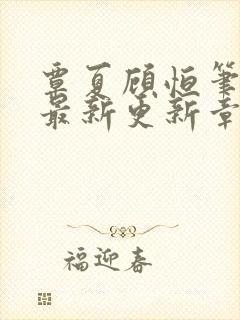 覃夏顾恒笔
最新更新章
福迎春